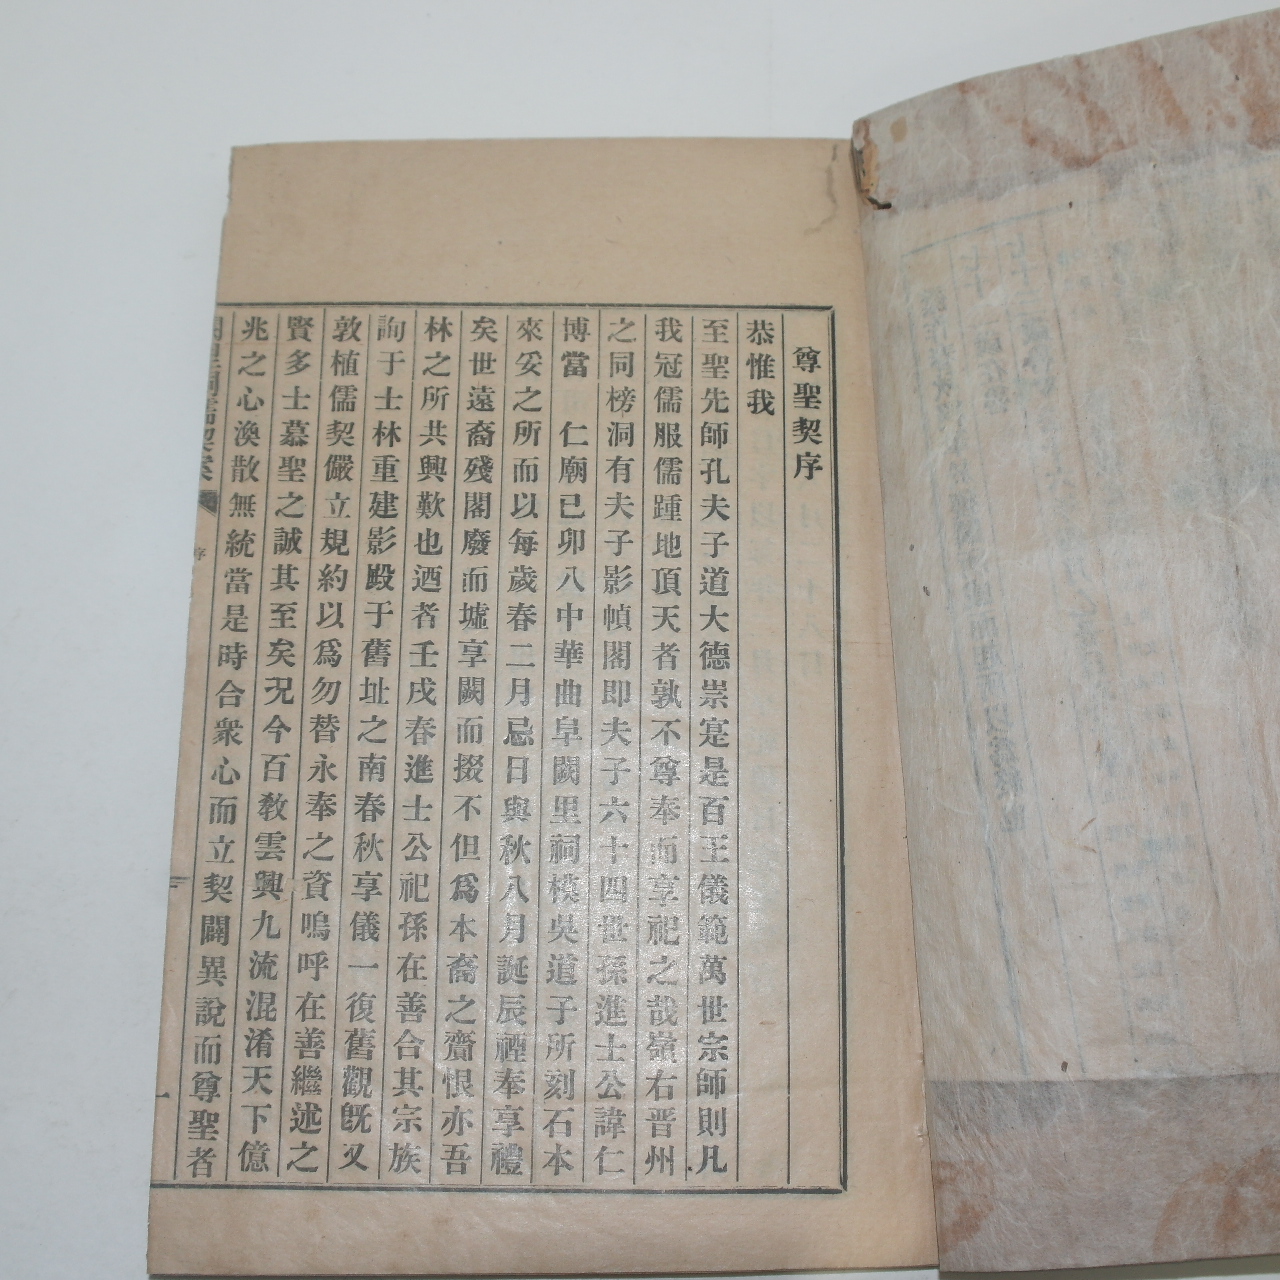 尊聖契序
恭惟我
至聖先師孔夫子道大德崇寔是百王儀範萬世宗師則凡
我冠儒服儒踵地頂天者孰不尊奉而享祀之哉嶺右晋州
之同榜洞有夫子影幀閣即夫子六十四世孫進士公諱仁
博當 仁廟已卯八中華曲阜闕里祠模吳道子所刻石本
來妥之所而以每歲春二月忌日與秋八月誕辰禋奉享禮
矣世遠裔殘閣廢而墟享闕而掇不但爲本裔之齎恨亦吾
林之所共興歎也迺者壬戌春進士公祀孫在善合其宗族
詢于士林重建影殿于舊址之南春秋享儀一復舊觀旣又
敦植儒契儼立規約以爲勿替永奉之資嗚呼在善繼述之
賢多士慕聖之誠其至矣況今百教雲興九流混淆天下億
兆之心渙散無統當是時合衆心而立契闢異說而尊聖者
儒契案
序
一